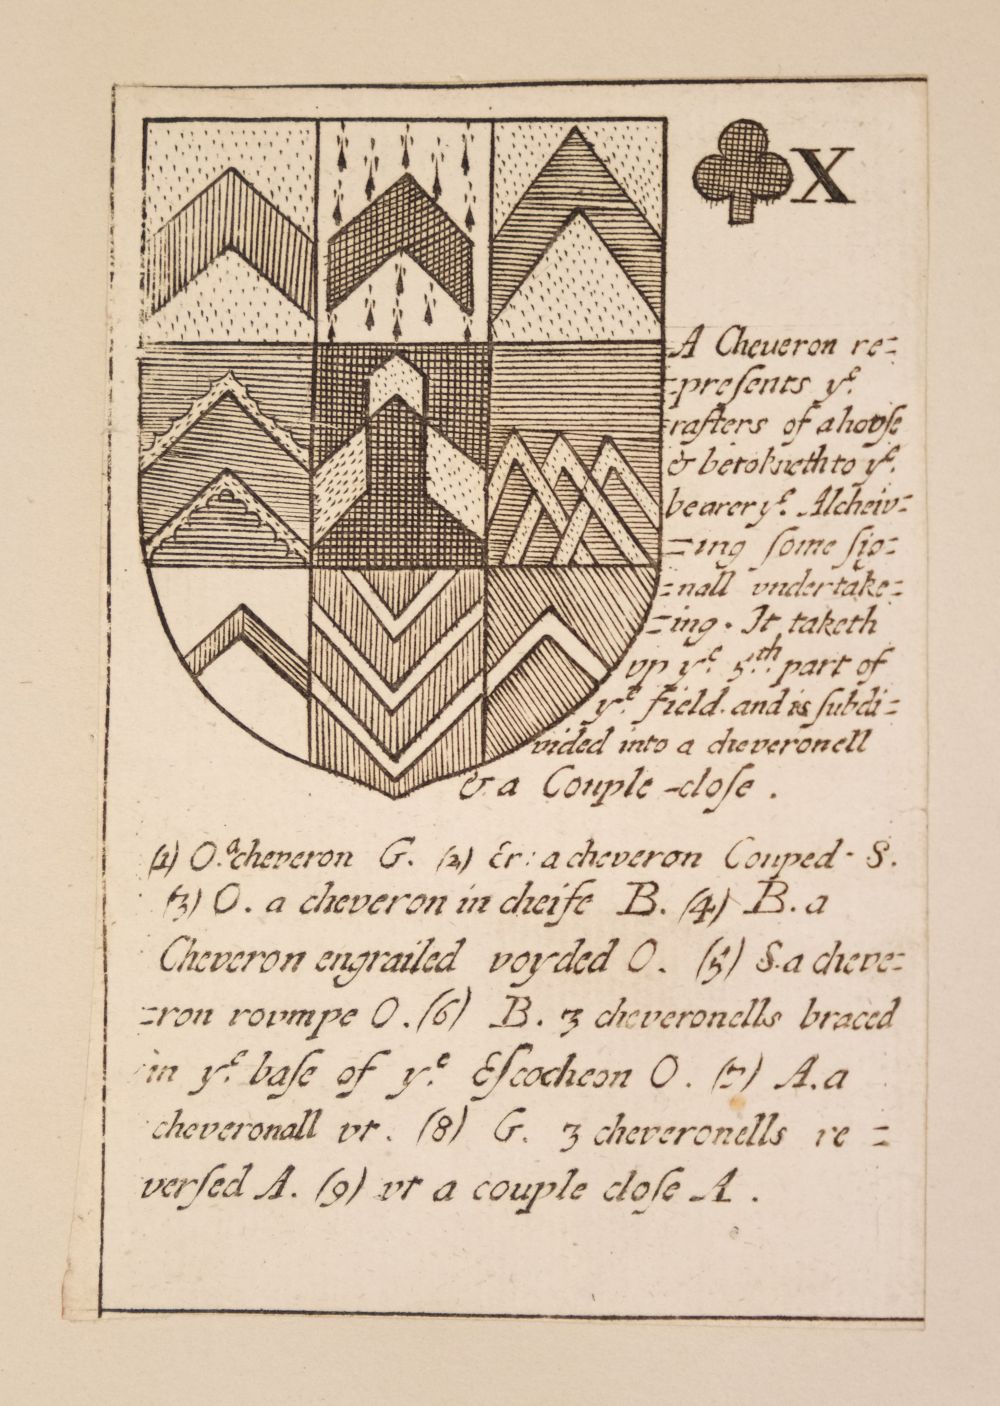 X
A Cheueron re=
=presents yᵉ.
rafters of a house
& betokneth to yᵉ.
bearer yᵉ. Atcheiv=
=ing some sig=
=nall vndertake=
=ing. It taketh
vp yᵉ 5ᵗʰ. part of
yᵉ field. and is subdi=
vided into a cheveronell
& a Couple-close.
(1) O. a cheveron G. (2) Er: a cheveron Couped S.
(3) O. a cheveron in cheife B. (4) B. a
Cheveron engrailed voyded O. (5) S. a cheve=
=ron rovmpe O. (6) B. 3 cheveronells braced
in yᵉ. base of yᵉ. Escocheon O. (7) A. a
cheveronall vt. (8) G. 3 cheveronells re=
versed A. (9) vt a couple close A.